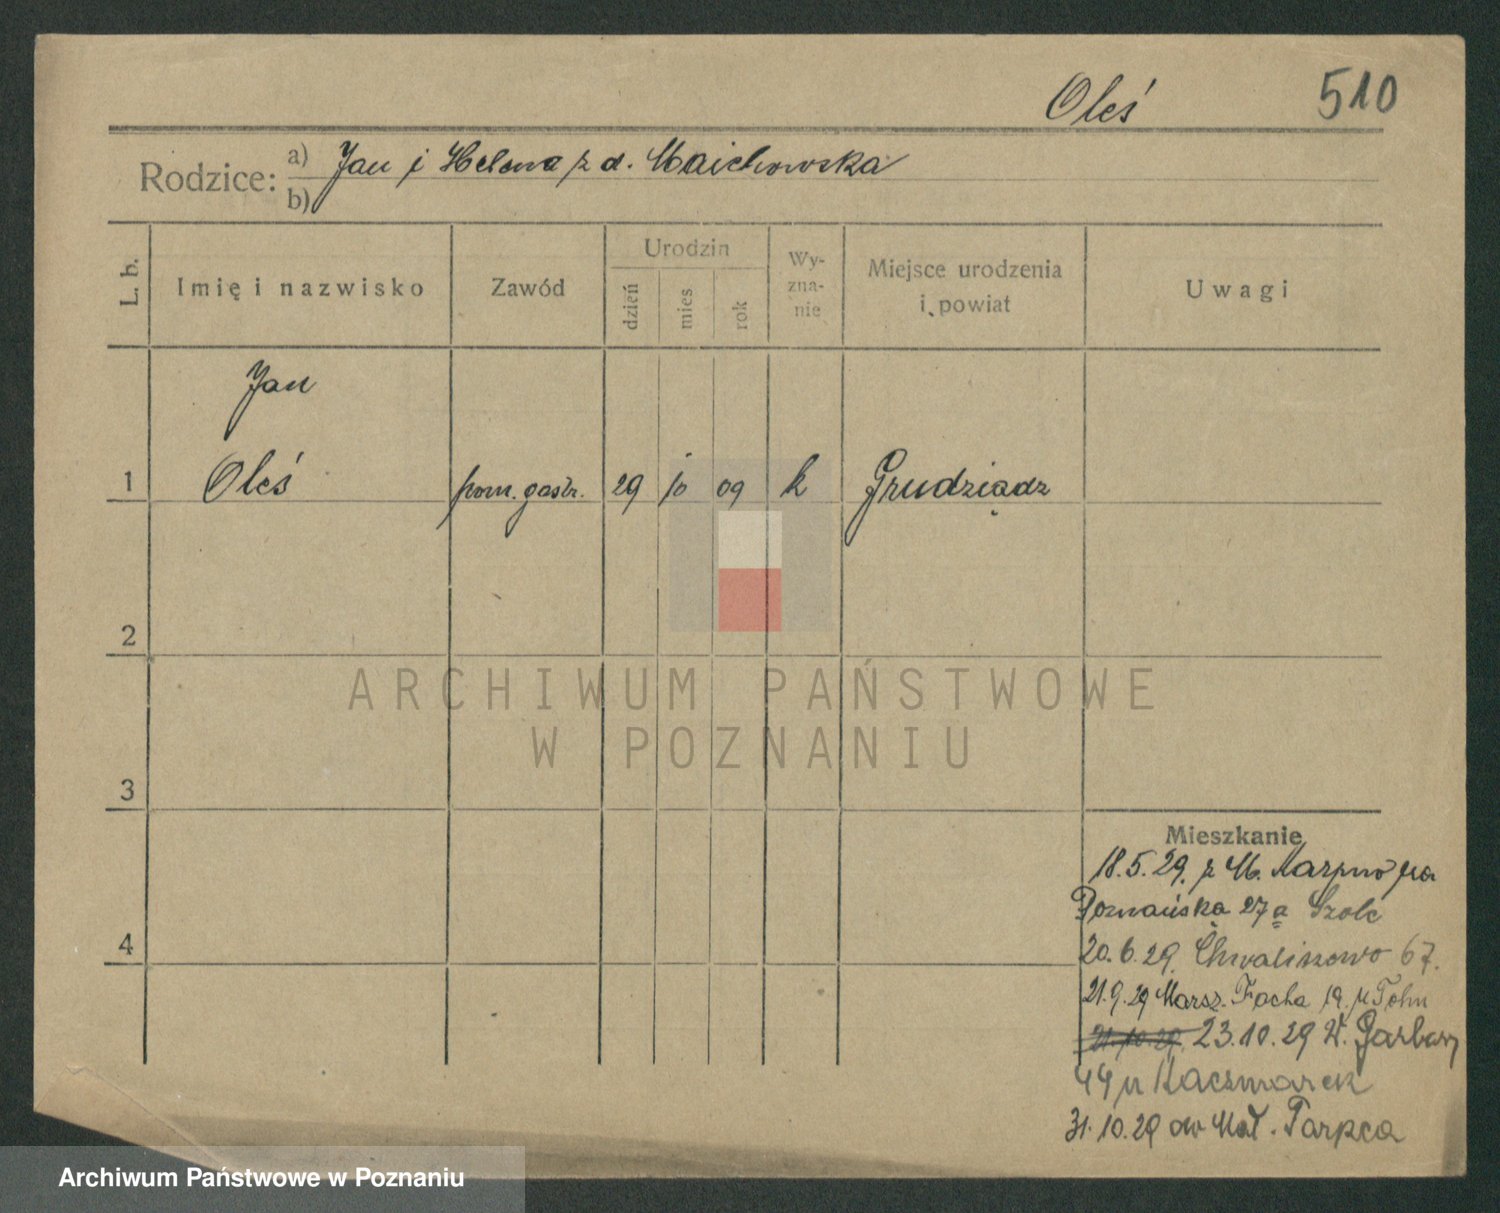 Oleś 510
Rodzice: a) Jan i Helena z d. Maichowska
b)
L. b. Imię i nazwisko Zawód Urodzin dzień mies rok Wy-zna-nie Miejsce urodzenia i powiat Uwagi
Jan
1 Oleś pom. gastr. 29 10 09 k Grudziądz
2
ARCHIWUM PAŃSTWOWE
W POZNANIU
3
Mieszkanie
18.5.29. z M.
Poznańska 27a Szolc
4
20.6.29. Chwaliszewo 67.
21.9.29 Marsz. Focha 19.
21.10.29. 23.10.29 W. Garbary
44 u Kaczmarek
31.10.29 do Mał. Tarpca
Archiwum Państwowe w Poznaniu